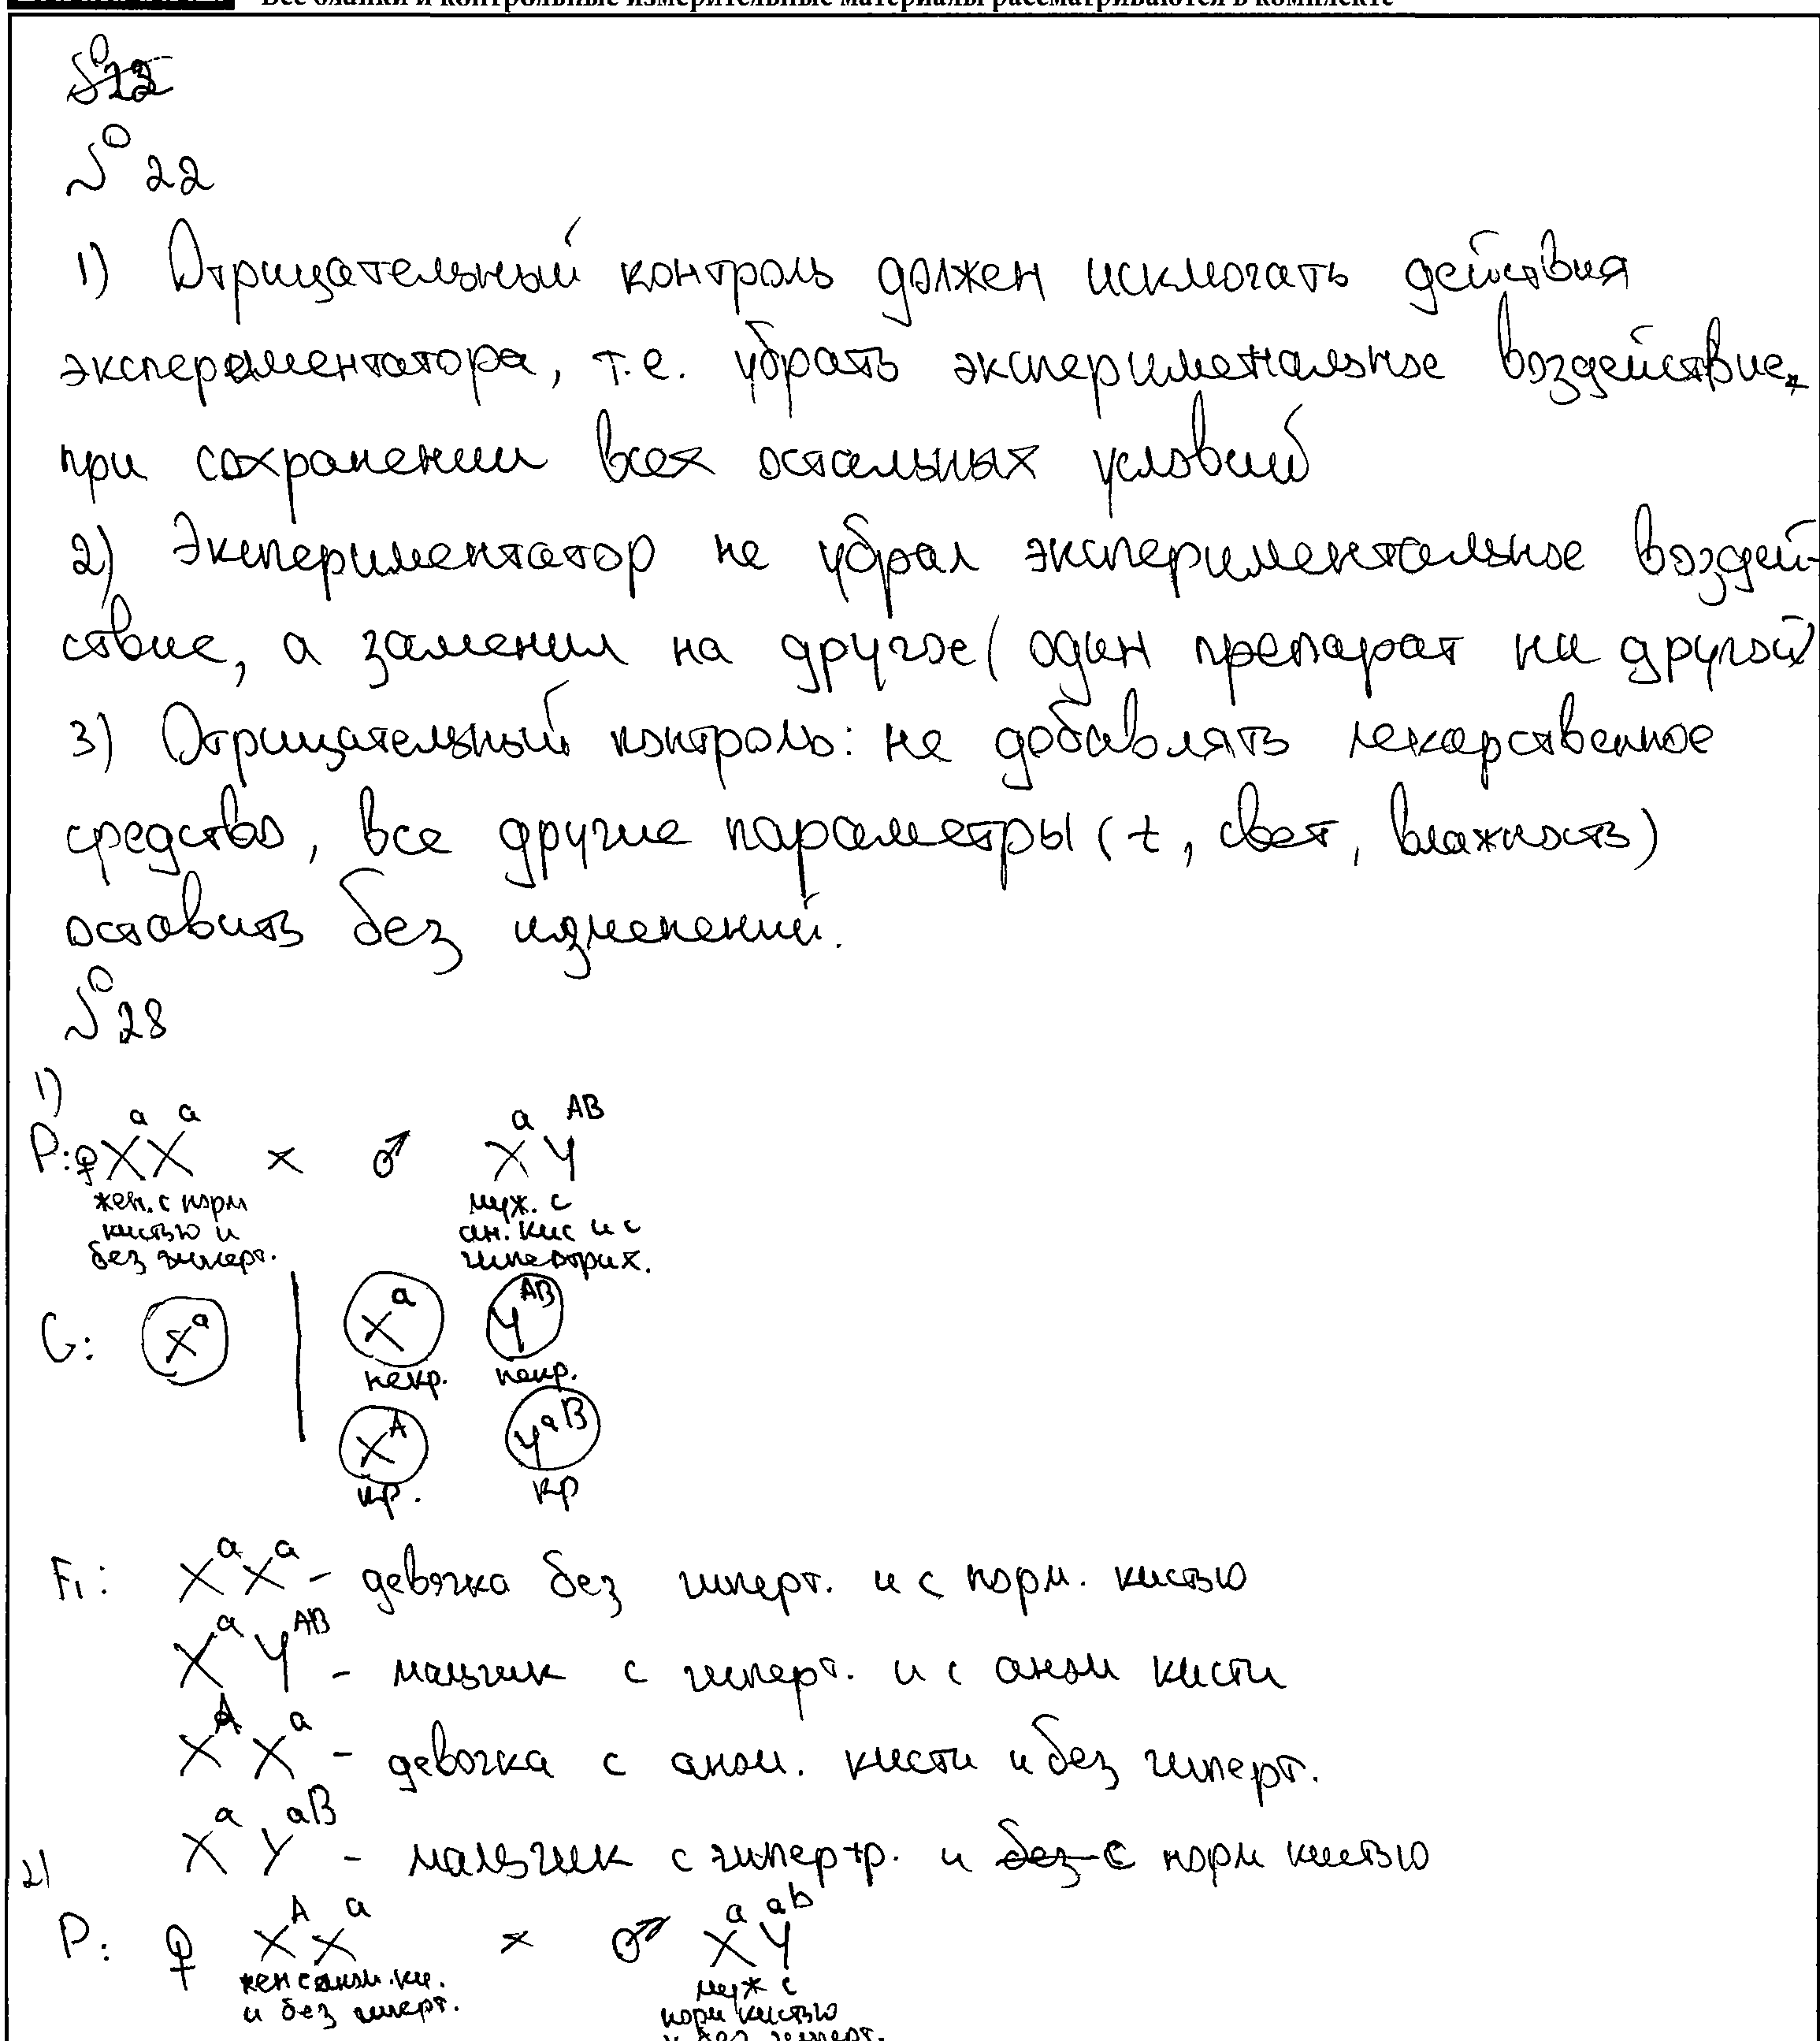 Все бланки и контрольные измерительные материалы рассматриваются в комплекте
№ 22
1) Отрицательный контроль должен исключать действия
эксперементатора, т.е. убрать экспериметнальное воздействие,
при сохранении всех остальных условий
2) Экспериментатор не убрал экспериментальное воздей-
ствие, а заменил на другое (один препарат на другой)
3) Отрицательный контроль: не добавлять лекарственное
средство, все другие параметры (t, свет, влажность)
оставить без изменений.
№ 28
1)
P: ♀ XᵃXᵃ × ♂ XᵃYᴬᴮ
жен. с норм муж. с
кистью и ан. кис и с
без гиперт. гипертрих.
G: Xᵃ | Xᵃ Yᴬᴮ
некр. некр.
Xᴬ Yᵃᴮ
кр. кр
F₁: XᵃXᵃ - девочка без гиперт. и с норм. кистью
XᵃYᴬᴮ - мальчик с гиперт. и с аном кисти
XᴬXᵃ - девочка с аном. кисти и без гиперт.
XᵃYᵃᴮ - мальчик с гипертр. и без с норм кистью
2)
P: ♀ XᴬXᵃ × ♂ XᵃYᵃᵇ
жен с аном. ки. муж с
и без гиперт. норм кистью
и без гиперт.